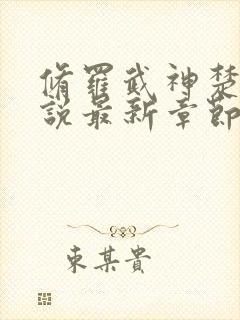 脩羅武神楚
說最新章節
東某貴